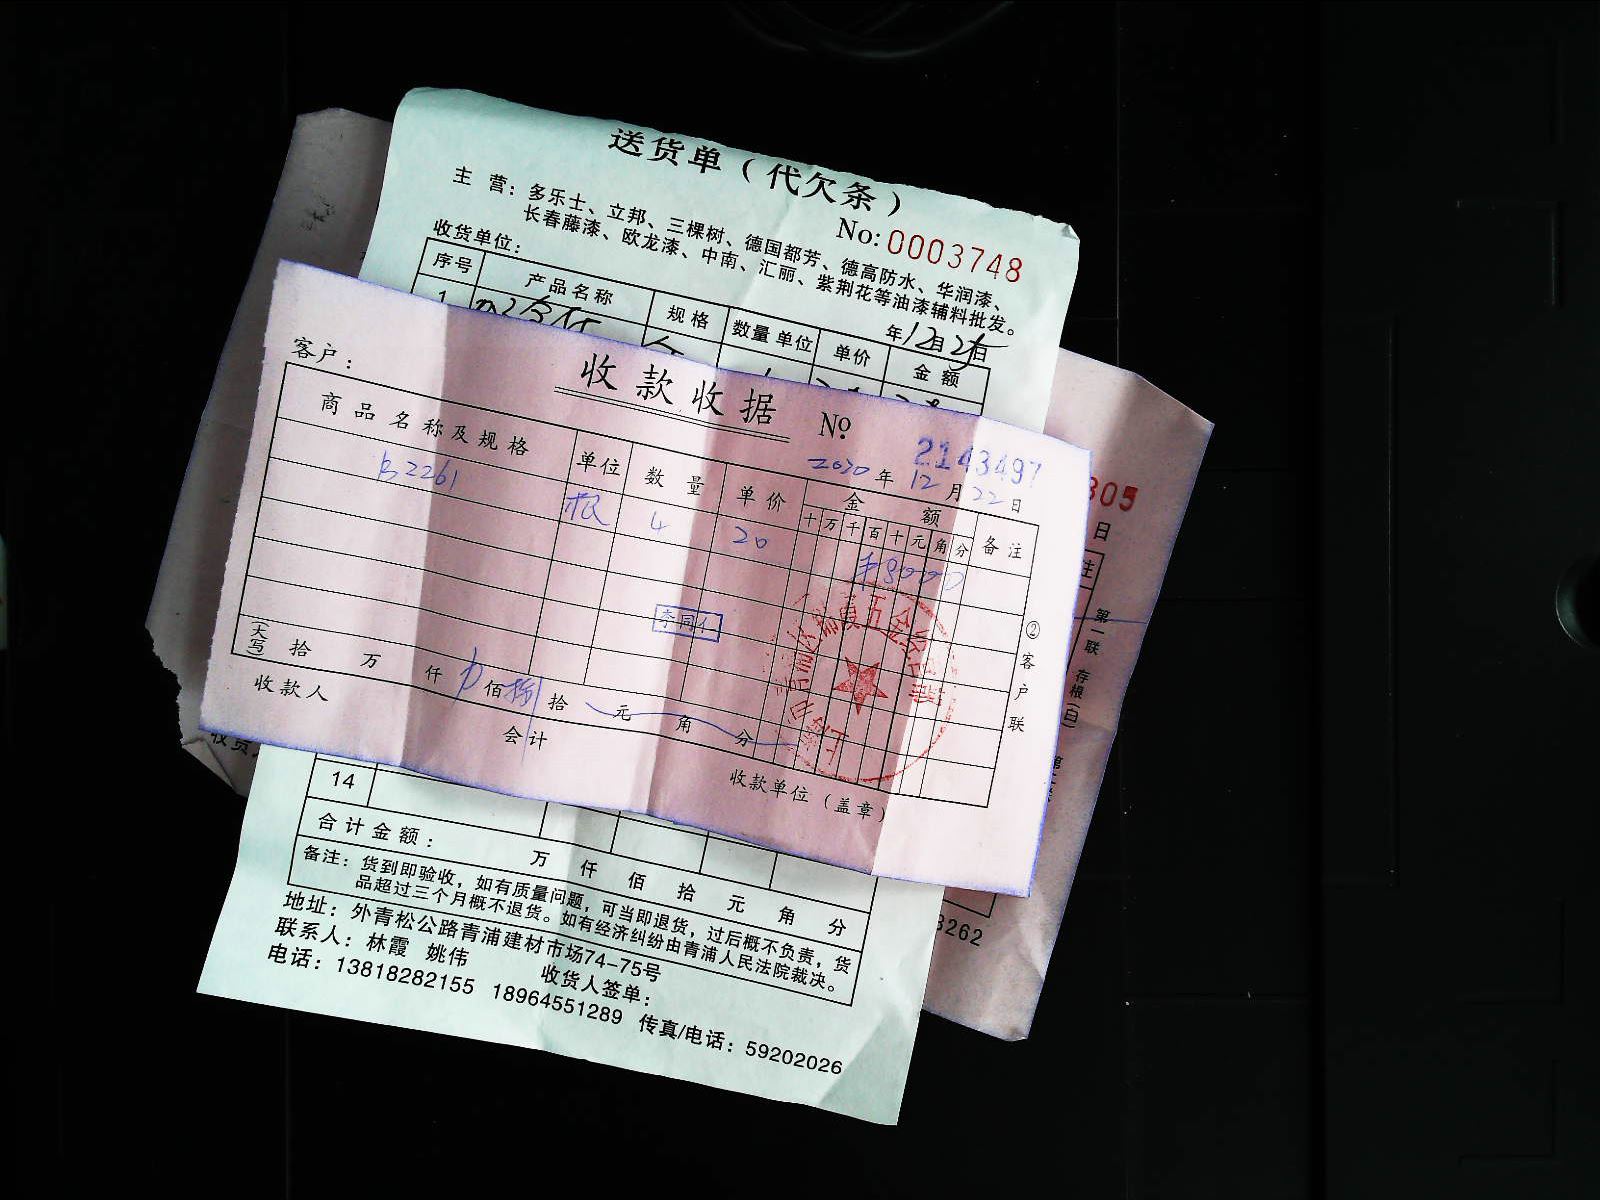 送货单（代欠条）
主 营：多乐士、立邦、三棵树、德国都芳、德高防水、华润漆、
长春藤漆、欧龙漆、中南、汇丽、紫荆花等油漆辅料批发。
No:0003748
收货单位：
年12月25日
序号 产品名称 规格 数量 单位 单价 金额
1
收款收据 №
2143497
客户：
2020年12月22日
商品名称及规格 单位 数量 单价 金额 备注
十 万 千 百 十 元 角 分
B2261 根 4 20 ¥8000
②客户联
(大写) 拾 万 仟 佰 捌 拾 元 角 分
收款人 会计 收款单位（盖章）
305
日
注
第一联 存根(白)
收货
14
合计金额： 万 仟 佰 拾 元 角 分
备注：货到即验收，如有质量问题，可当即退货，过后概不负责，货
品超过三个月概不退货。如有经济纠纷由青浦人民法院裁决。
地址：外青松公路青浦建材市场74-75号
联系人：林霞 姚伟 收货人签单：
电话：13818282155 18964551289 传真/电话：59202026
3262